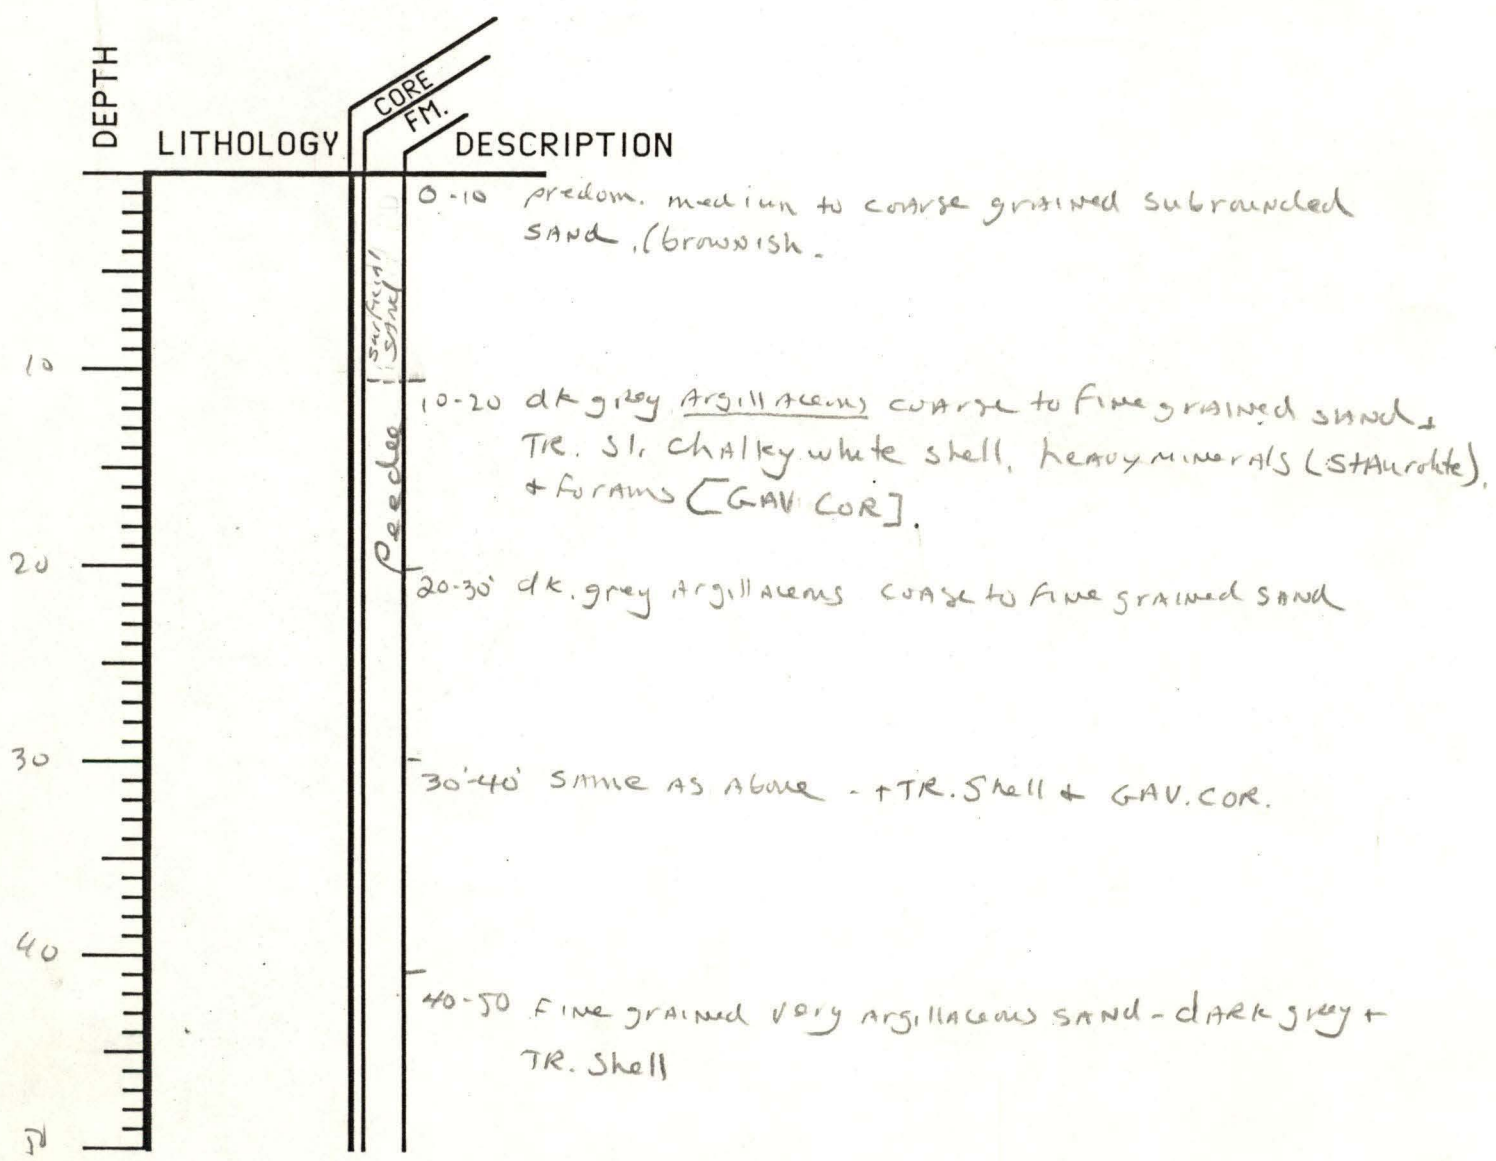 DEPTH
LITHOLOGY
CORE
FM.
DESCRIPTION
0-10 predom. medium to coarse grained subrounded
SAND, (brownish.
surficial
SAND
10
10-20 dk grey Argillaceous coarse to fine grained sand +
TR. sl. chalky white shell, heavy minerals (staurolite),
+ forams [GAV. COR].
Peedee
20
20-30' dk. grey Argillaceous coarse to fine grained SAND
30
30'-40' SAME AS Above - + TR. Shell + GAV. COR.
40
40-50 Fine grained very argillaceous SAND - dARK grey +
TR. Shell
50